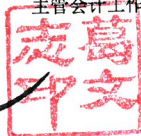 主管会计工作
葛文
志印